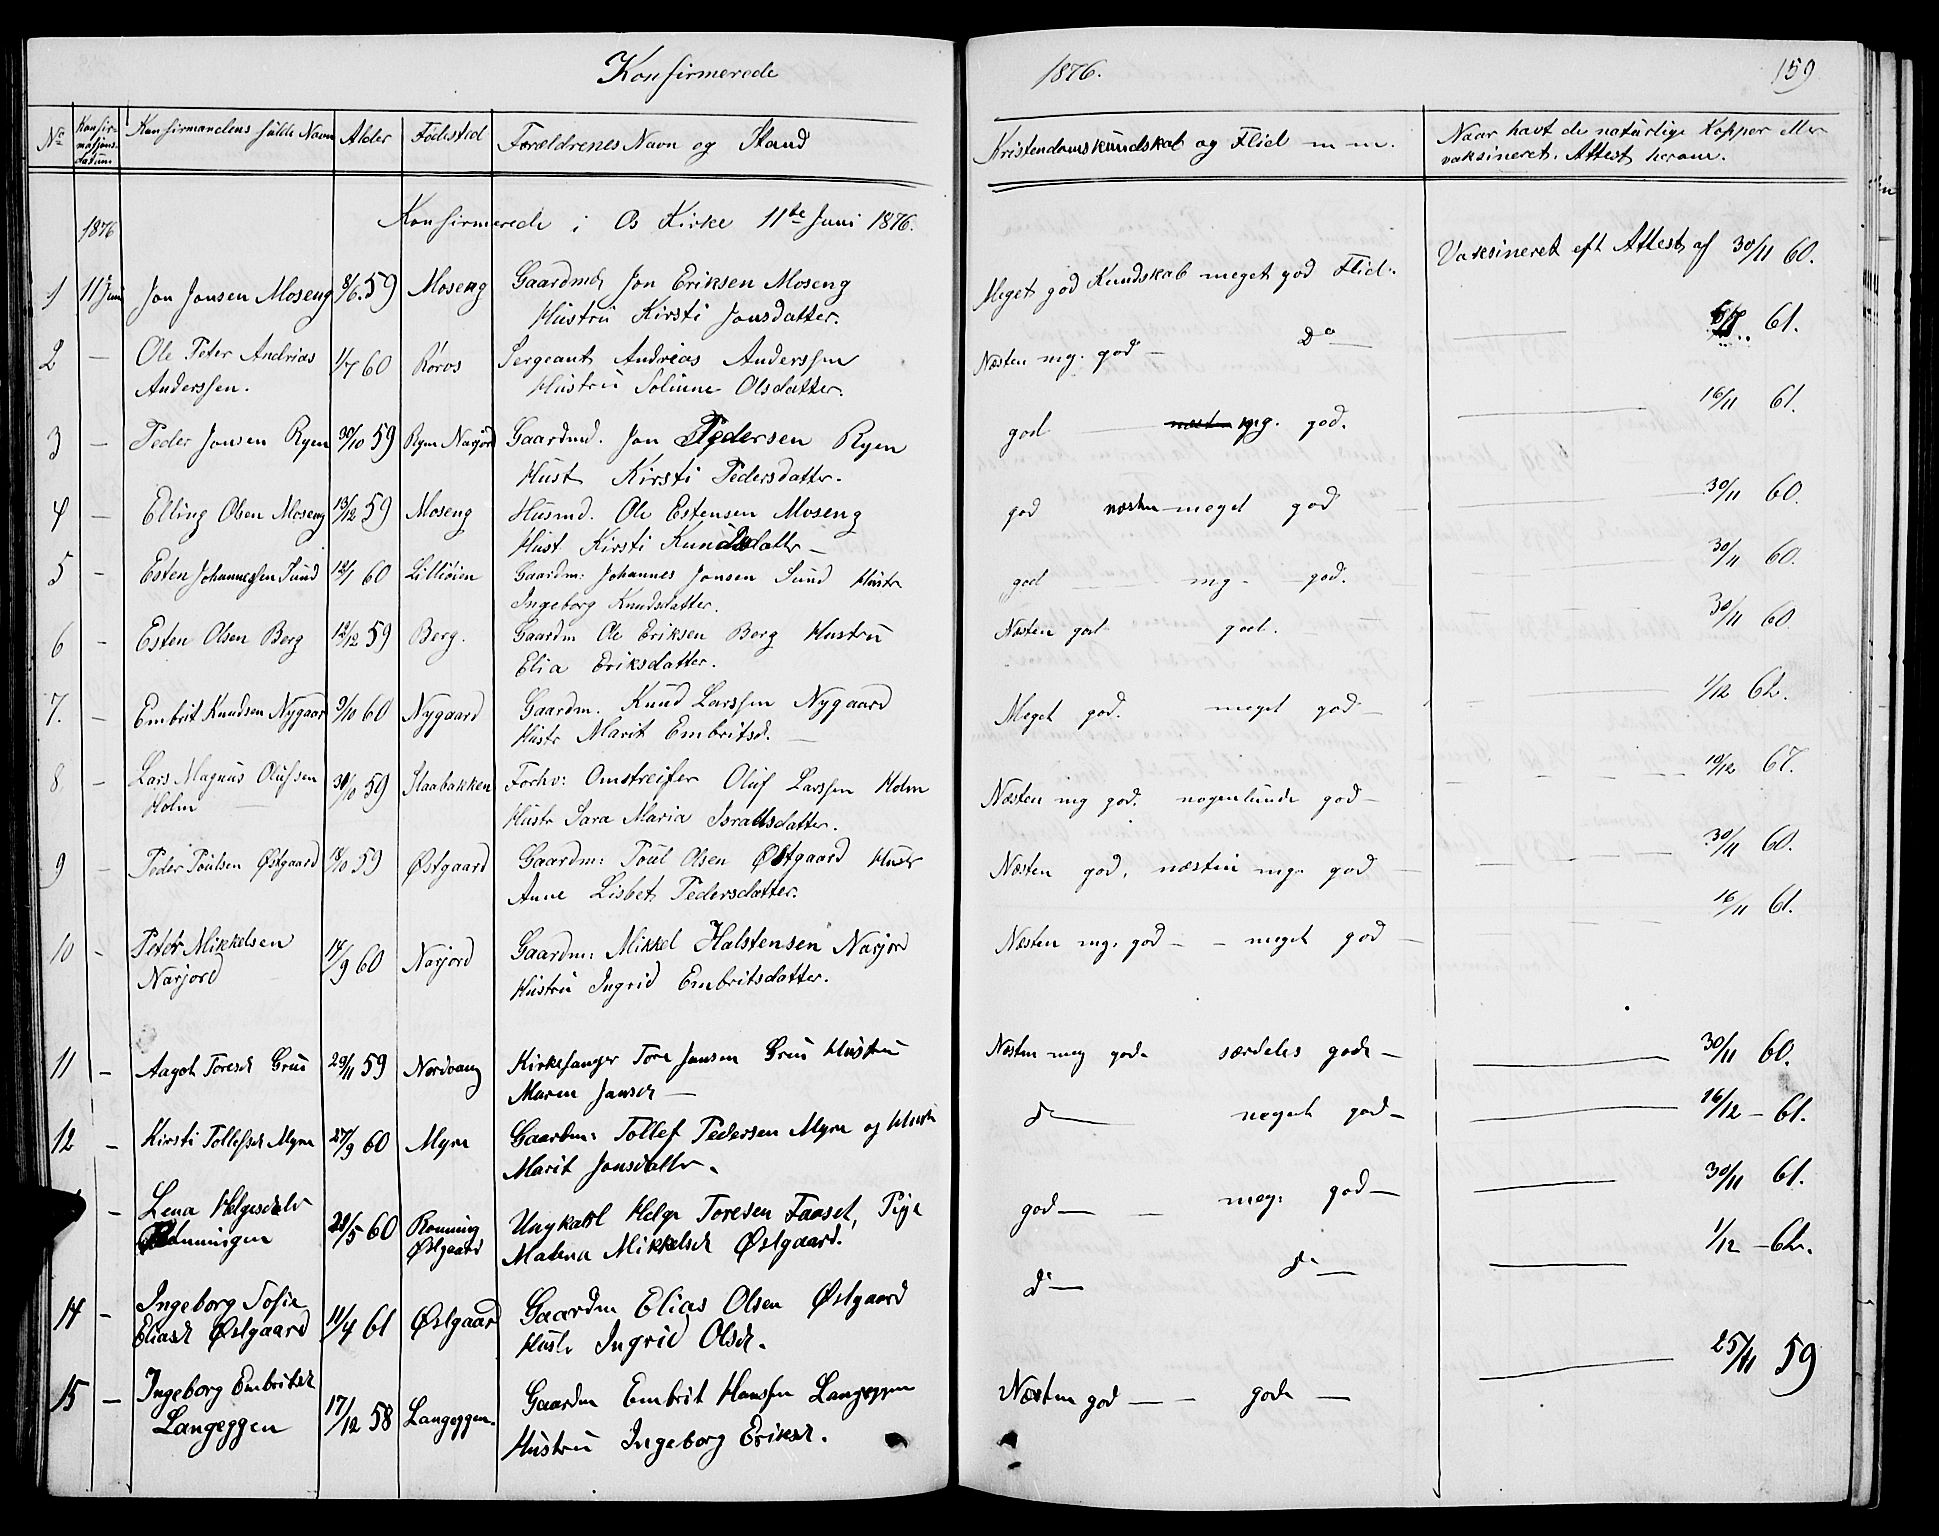 Konfirmerede 1876. 159
No Konfirmationsdatum Konfirmandens fulde Navn Alder Fødested Forældrenes Navn og Stand Kristendomskundskab og Flid m m. Naar havt de naturlige Kopper eller
vaksineret. Attest herom.
1876 Konfirmerede i Os Kirke 11te Juni 1876.
1 11 Juni Jon Jonsen Moseng 8/6 59 Moseng Gaardmd Jon Eriksen Moseng Meget god Kundskab meget god Flid. Vaksineret eft Attest af 30/11 60.
Hustru Kirsti Jonsdatter.
2 — Ole Peter Andrias 1/7 60 Røros Sergeant Andreas Anderssen Næsten mg. god — Do — 61.
Anderssen. Hustru Soline Olsdatter.
3 — Peder Jonsen Ryen 30/10 59 Ryen Narjord Gaardmd. Jon Pedersen Ryen god — mg. god. — 16/11 61.
Hust Kirsti Pedersdatter.
4 — Elling Olsen Moseng 13/12 59 Moseng Husmd. Ole Estensen Moseng god næsten meget god — 30/11 60.
Hust Kirsti Knudsdattr —
5 — Esten Johannessen Sund 12/1 60 Lilleøien Gaardm: Johannes Jonsen Sund Hustr god — mg — god. 30/11 60.
Ingeborg Knudsdatter.
6 — Esten Olsen Berg 12/12 59 Berg. Gaardm Ole Eriksen Berg Hustru Næsten god god. 30/11 60
Elia Eriksdatter.
7. — Embrit Knudsen Nygaar 9/10 60 Nygaard Gaardm. Knud Larssen Nygaard Meget god. meget god — 1/12 62.
Hustr Marit Embritsd. —
8 — Lars Magnus Olufsen 30/10 59 Slaabakken Forhv: Omstreifer Oluf Larssen Holm Næsten mg god. nogenlunde god — 19/12 67.
Holm Hustr Sara Maria Israelsdatter.
9 — Peder Poulsen Østgaard 18/10 59 Østgaard Gaardm: Poul Olsen Østgaard Hustr Næsten god, næsten mg. god — 30/11 60.
Anne Lisbet Pedersdatter.
10 — Peter Mikkelsen 14/9 60 Narjord Gaardm: Mikkel Halstensen Narjord Næsten mg. god — — meget god — 16/11 61.
Narjord Hustru Ingrid Embritsdatter.
11 — Aagot Toresd Grue 29/11 59 Nordvang Kirkesanger Tore Jansen Grue Hustru Næsten meg god. særdeles god. — 30/11 60.
Maren Jansd —
12 — Kirsti Tollefsd Myre 27/9 60 Myre Gaardm: Tollef Pedersen Myre og Hust do — meget god — 16/12 — 61.
Marit Jonsdattr.
— Lena Helgesdatr 28/5 60 Rønning Ungkarl Helge Toresen Faaset, Pige god — — meg: god — 30/11 61.
Rønningen Østgaard Malena Mikkelsd Østgaard.
14 — Ingeborg Sofie 11/4 61 Østgaar Gaardm Elias Olsen Østgaard do — do — 1/12 — 62.
Eliasd Østgaard Hustr Ingrid Olsd.
15 — Ingeborg Embritsd 17/12 58 Langeggen. Gaardm Embrit Hanssen Langeggen Næsten god — — god. — 25/11 59
Langeggen Hustru Ingeborg Eriksd.